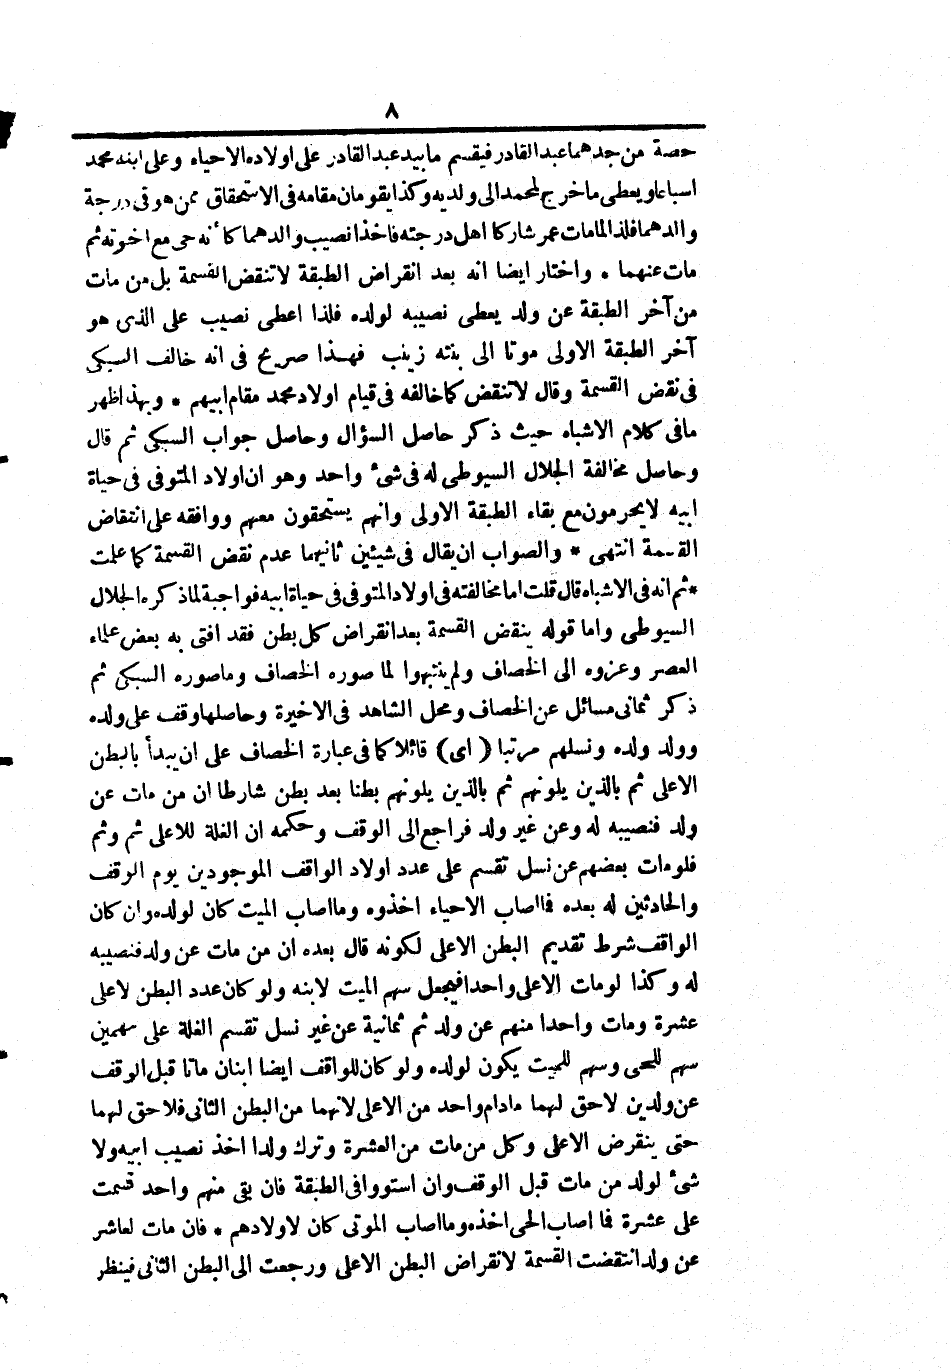 ٨
حصة من جدهما عبد القادر فيقسم ما بيد عبد القادر على اولاده الاحياء وعلى ابنه محمد
اسباعا ويعطى ما خرج لمحمد الى ولديه وكذا يقومان مقامه فى الاستحقاق ممن هو فى درجة
والدهما فلذا لما مات عمر شاركا اهل درجته فاخذا نصيب والدهما كأنه حى مع اخوته ثم
مات عنهما * واختار ايضا انه بعد انقراض الطبقة لا تنقض القسمة بل من مات
من آخر الطبقة عن ولد يعطى نصيبه لولده فلذا اعطى نصيب على الذى هو
آخر الطبقة الاولى موتا الى بنته زينب فهذا صريح فى انه خالف السبكى
فى نقض القسمة وقال لا تنقض كما خالفه فى قيام اولاد محمد مقام ابيهم * وبهذا ظهر
ما فى كلام الاشباه حيث ذكر حاصل السؤال وحاصل جواب السبكى ثم قال
وحاصل مخالفة الجلال السيوطى له فى شئ واحد وهو ان اولاد المتوفى فى حياة
ابيه لا يحرمون مع بقاء الطبقة الاولى وانهم يستحقون معهم ووافقه على انتقاض
القسمة انتهى * والصواب ان يقال فى شيئين ثانيهما عدم نقض القسمة كما علمت
* ثم انه فى الاشباه قال قلت اما مخالفته فى اولاد المتوفى فى حياة ابيه فواجبة لما ذكره الجلال
السيوطى واما قوله ينقض القسمة بعد انقراض كل بطن فقد افتى به بعض علماء
العصر وعزوه الى الخصاف ولم ينتبهوا لما صوره الخصاف وما صوره السبكى ثم
ذكر ثمانى مسائل عن الخصاف ومحل الشاهد فى الاخيرة وحاصلها وقف على ولده
وولد ولده ونسلهم مرتبا ( اى ) قائلا كما فى عبارة الخصاف على ان يبدأ بالبطن
الاعلى ثم بالذين يلونهم ثم بالذين يلونهم بطنا بعد بطن شارطا ان من مات عن
ولد فنصيبه له وعن غير ولد فراجع الى الوقف وحكمه ان الغلة للاعلى ثم وثم
فلو مات بعضهم عن نسل تقسم على عدد اولاد الواقف الموجودين يوم الوقف
والحادثين له بعده فما اصاب الاحياء اخذوه وما اصاب الميت كان لولده وان كان
الواقف شرط تقديم البطن الاعلى لكونه قال بعده ان من مات عن ولد فنصيبه
له وكذا لو مات الاعلى واحدا فيجعل سهم الميت لابنه ولو كان عدد البطن لاعلى
عشرة ومات واحدا منهم عن ولد ثم ثمانية عن غير نسل تقسم الغلة على سهمين
سهم للحى وسهم للميت يكون لولده ولو كان للواقف ايضا ابنان ماتا قبل الوقف
عن ولدين لاحق لهما مادام واحد من الاعلى لانهما من البطن الثانى فلا حق لهما
حتى ينقرض الاعلى وكل من مات من العشرة وترك ولدا اخذ نصيب ابيه ولا
شئ لولد من مات قبل الوقف وان استووا فى الطبقة فان بقى منهم واحد قسمت
على عشرة فما اصاب الحى اخذه وما اصاب الموتى كان لاولادهم * فان مات لعاشر
عن ولد انتقضت القسمة لانقراض البطن الاعلى ورجعت الى البطن الثانى فينظر